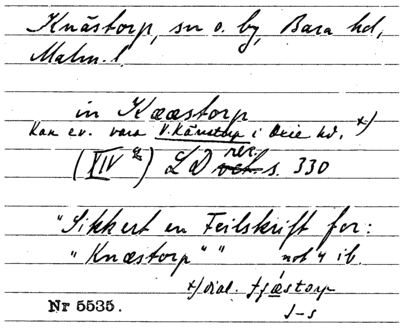 Knästorp, sn o. by, Bara hd,
Malm. l.
in Kææstorp
Kan ev. vara V. Kärstorp i Oxie hd. x)
(XIV 2) LD rer. s. 330
"Sikkert en Feilskrift for:
"Knæstorp" " not 4 ib.
x) dial. tjástorp
J-s
Nr 5535.